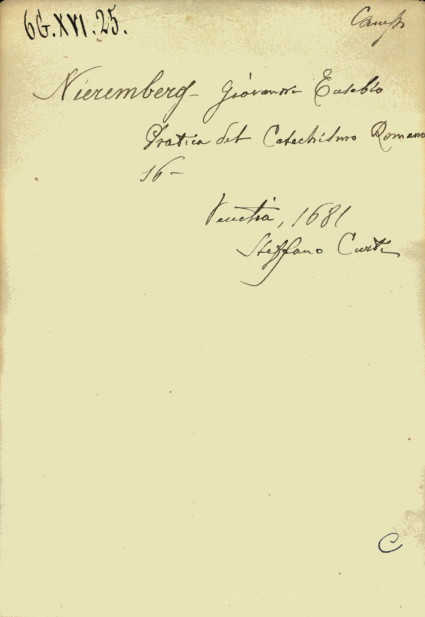 6G.XVI.25.
Nieremberg - Giovanni Eusebio
Pratica del Catechismo Romano
16-
Venetia, 1681
Steffano Curti
C